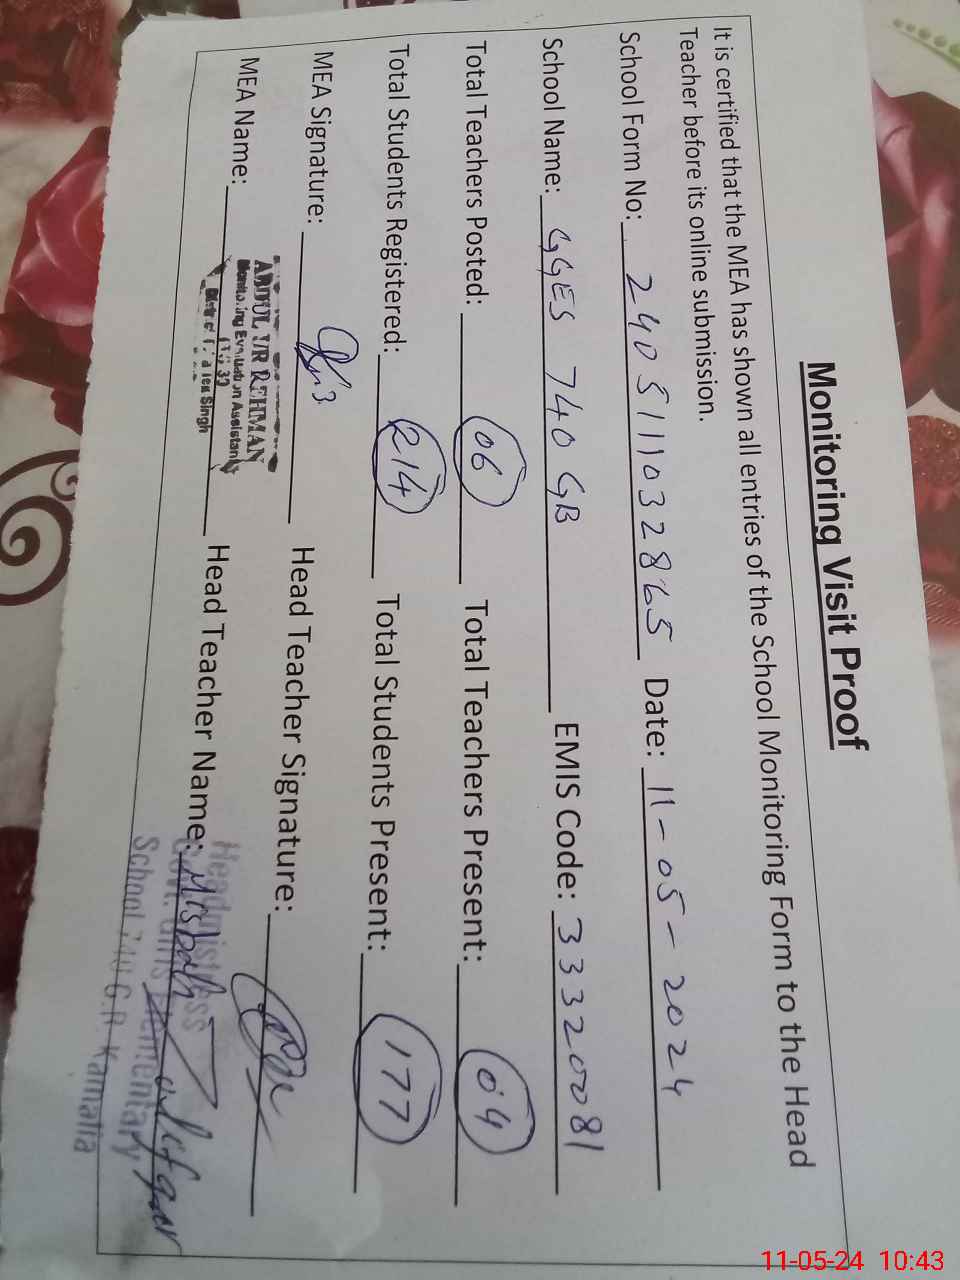 Monitoring Visit Proof
It is certified that the MEA has shown all entries of the School Monitoring Form to the Head
Teacher before its online submission.
School Form No: 240511032865 Date: 11-05-2024
School Name: GGES 740 GB EMIS Code: 33320081
Total Teachers Posted: 06 Total Teachers Present: 04
Total Students Registered: 214 Total Students Present: 177
MEA Signature: Head Teacher Signature:
MEA Name: Head Teacher Name: Misbah Zulfqar
ABDUL UR REHMAN
Monitoring Evaluation Assistant
Singh
Headmistress
Govt. Girls Elementary
School 740 G.B Kamalia
11-05-24 10:43